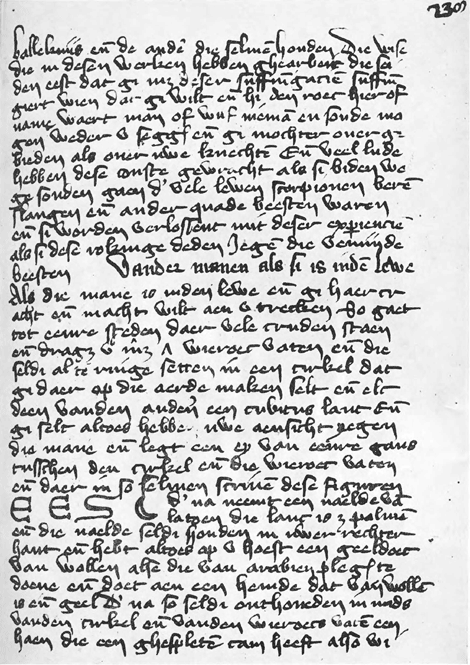 230v
die in desen werken hebben ghearbeit die sei
den eest dat gi mz deser suffumigacie suffum
giert wien dat gi wilt en̄ hi den roec hier of
name waert man of wijf en sonde mo
gen weder v en̄ gi mochter ouer ge
bieden als ouer uwe knechtē En̄ veel lude
hebben dese conste gewracht als si biden we
ge souden gaen d' vele lewen scorpionen berē
slangen en̄ ander quade beesten waren
en̄ si worden verlossent mit deser experiencie
als si dese rokinge deden Jegē die venijnde
beesten Vander manen als si is indē lewe
Als die mane is inden lewe en̄ gi haer cr
acht en̄ macht wilt aen v trecken so gaet
tot eenre steden daer vele cruden staen
en̄ v wieroec vaten en̄ die
seldi al te ringe setten in een cirkel dat
gi daer op die aerde maken selt en̄ elc
deen vanden anderē een cubitus lanc En̄
gi selt altoes hebbē uwe aensicht jegen
die mane en̄ legt een ey van eenre gans
tusschen den cirkel en̄ die wieroec vaten
en̄ daer in so selmen scriuen dese figuren
E E S d' na neemt een naelde vā
latoen die lanc is 3 palmen
en̄ die naelde seldi houden in uwer rechter
hant en̄ hebt altoes op v hoeft een geel doec
van wollen alse die van arabien plegē te
doene en̄ doet aen een hemde dat van wollē
is en̄ geel D' na so seldi onthouden in mids
vanden cirkel en̄ vanden wieroecs vatē een
haen die een ghespletē cam heeft also wi